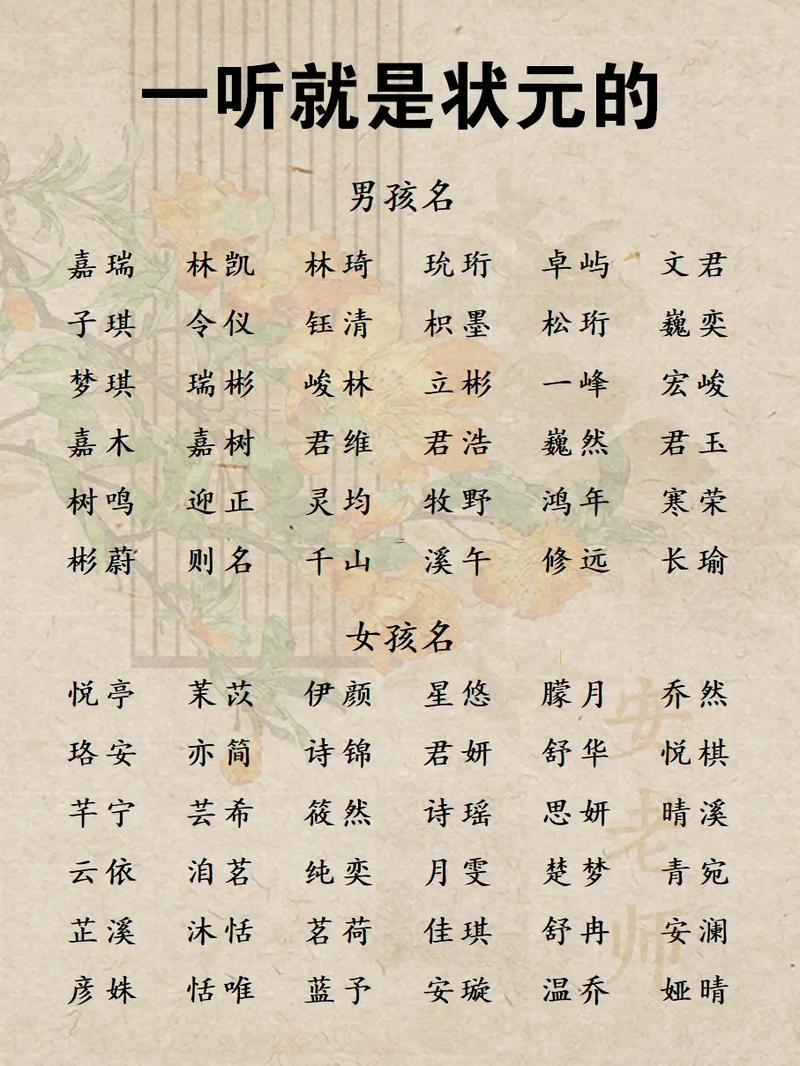 一听就是状元的
男孩名
嘉瑞 林凯 林琦 玧珩 卓屿 文君
子琪 令仪 钰清 枳墨 松珩 巍奕
梦琪 瑞彬 峻林 立彬 一峰 宏峻
嘉木 嘉树 君维 君浩 巍然 君玉
树鸣 迎正 灵均 牧野 鸿年 寒荣
彬蔚 则名 千山 溪午 修远 长瑜
女孩名
悦亭 茉苡 伊颜 星悠 朦月 乔然
珞安 亦简 诗锦 君妍 舒华 悦棋
芊宁 芸希 筱然 诗瑶 思妍 晴溪
云依 洎茗 纯奕 月雯 楚梦 青宛
芷溪 沐恬 茗荷 佳琪 舒冉 安澜
彦姝 恬唯 蓝予 安璇 温乔 娅晴
安老师